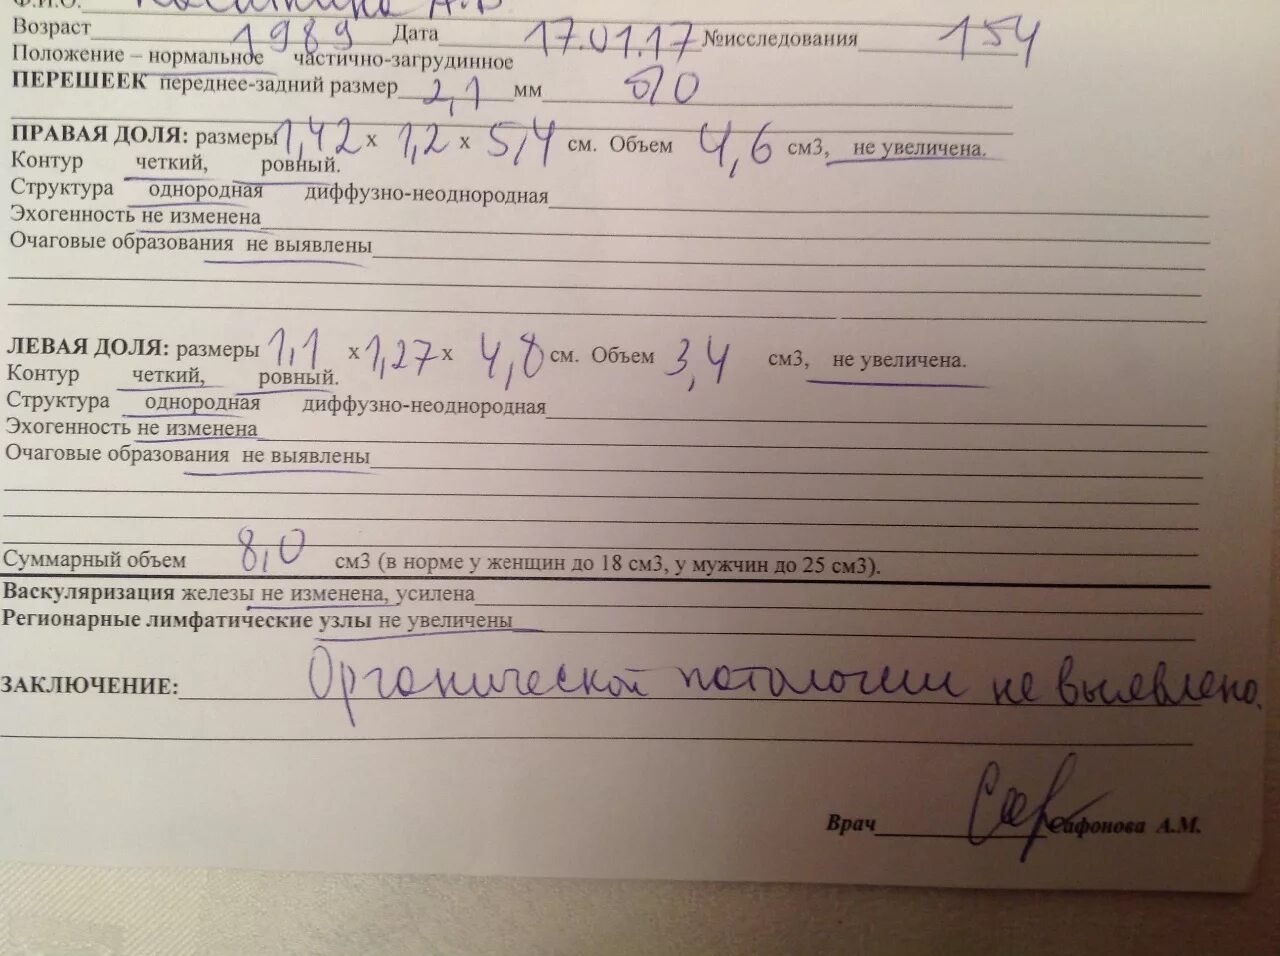 Ф.И.О. А.В
Возраст 1989 Дата 17.01.17 №исследования 154
Положение – нормальное частично-загрудинное
ПЕРЕШЕЕК переднее-задний размер 2,1 мм б/о
ПРАВАЯ ДОЛЯ: размеры 1,42 х 1,2 х 5,4 см. Объем 4,6 см3, не увеличена.
Контур четкий, ровный.
Структура однородная диффузно-неоднородная
Эхогенность не изменена
Очаговые образования не выявлены
ЛЕВАЯ ДОЛЯ: размеры 1,1 х 1,27 х 4,8 см. Объем 3,4 см3, не увеличена.
Контур четкий, ровный.
Структура однородная диффузно-неоднородная
Эхогенность не изменена
Очаговые образования не выявлены
Суммарный объем 8,0 см3 (в норме у женщин до 18 см3, у мужчин до 25 см3).
Васкуляризация железы не изменена, усилена
Регионарные лимфатические узлы не увеличены
ЗАКЛЮЧЕНИЕ: Органической патологии не выявлено.
Врач Сафонова А.М.